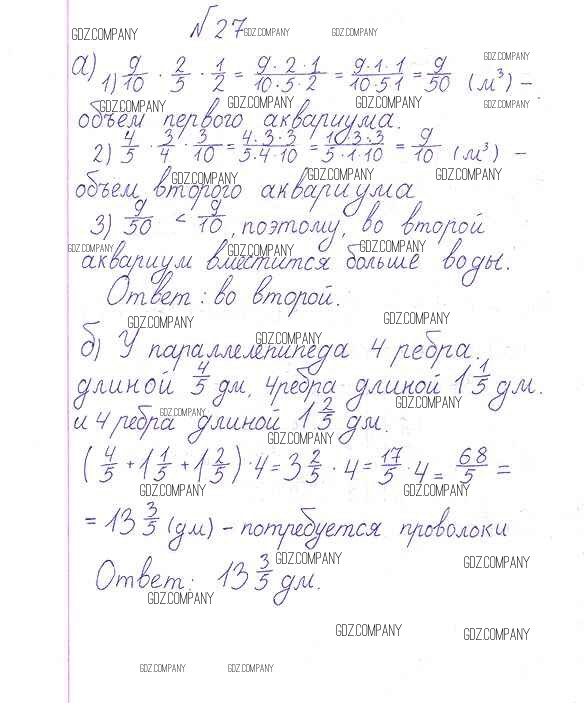 № 27
а) 1) 9/10 · 2/5 · 1/2 = 9·2·1/10·5·2 = 9·1·1/10·51 = 9/50 (м³) –
объем первого аквариума.
2) 4/5 · 3/4 · 3/10 = 4·3·3/5·4·10 = 1·3·3/5·1·10 = 9/10 (м³) –
объем второго аквариума
3) 9/50 < 9/10, поэтому, во второй
аквариум вместится больше воды.
Ответ: во второй.
б) У параллелепипеда 4 ребра.
длиной 4/5 дм, 4 ребра длиной 1 1/5 дм.
и 4 ребра длиной 1 2/5 дм.
(4/5 + 1 1/5 + 1 2/5) · 4 = 3 2/5 · 4 = 17/5 · 4 = 68/5 =
= 13 3/5 (дм) – потребуется проволоки
Ответ: 13 3/5 дм.
GDZ.COMPANY